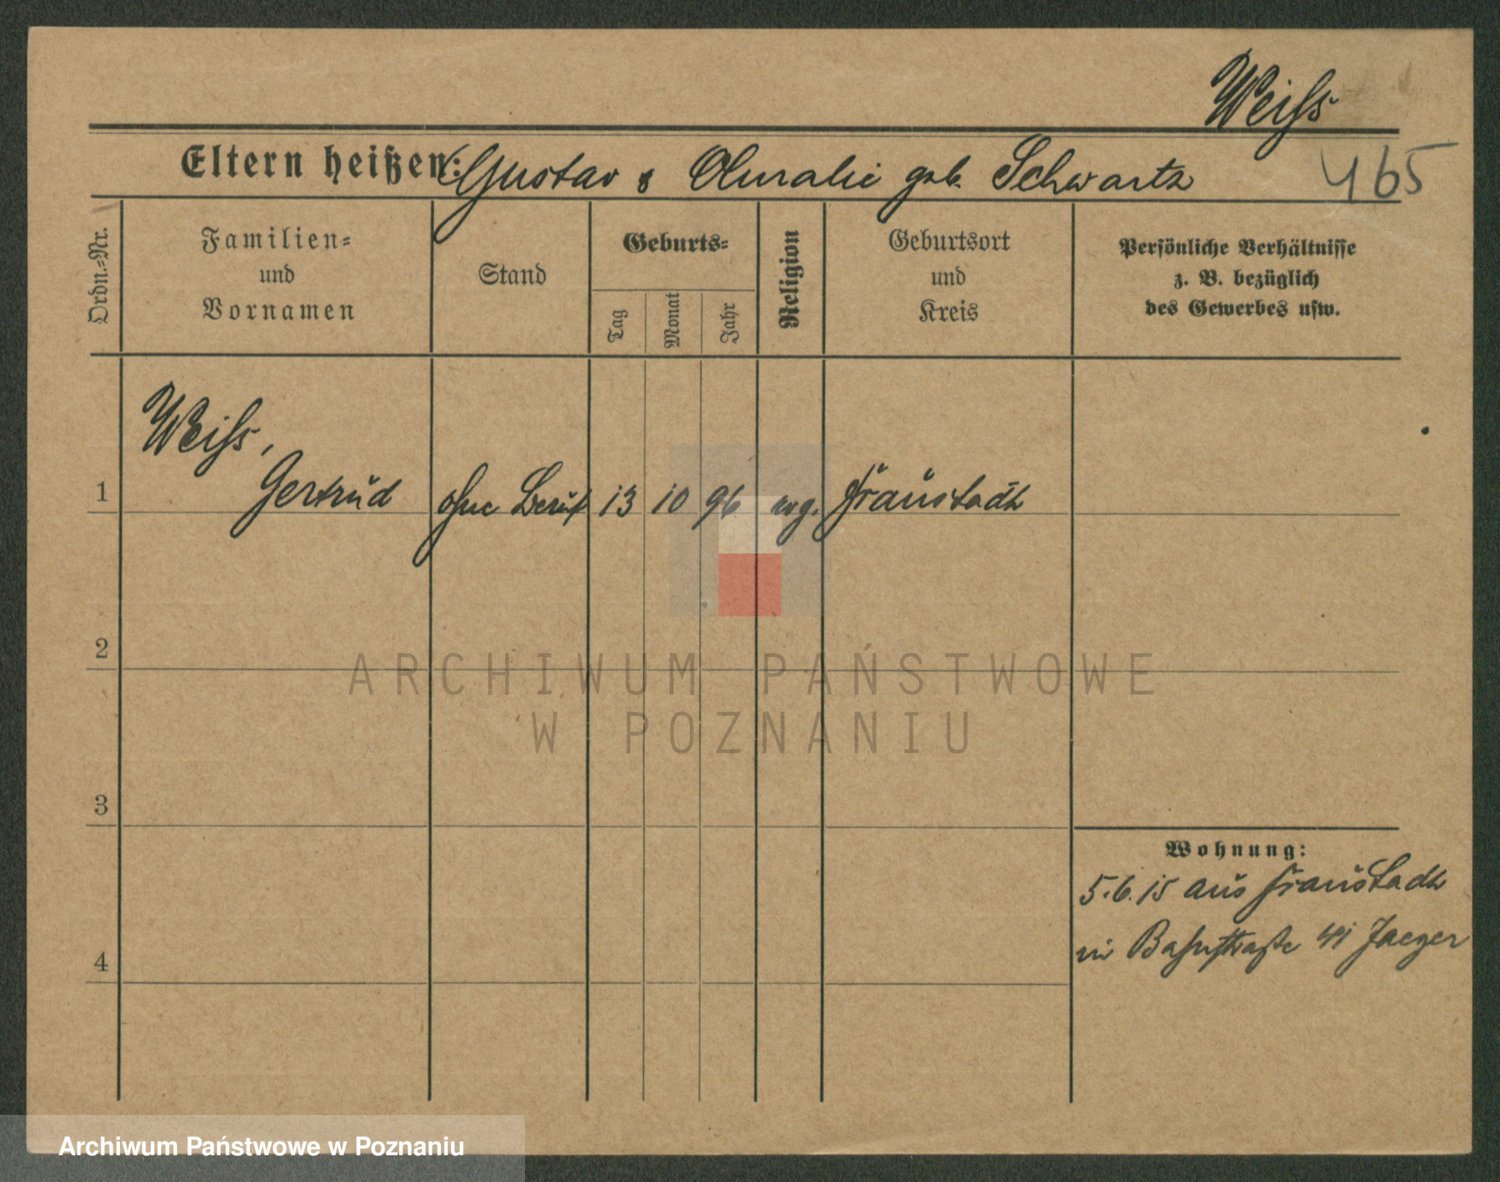 Weiss
Eltern heißen: Gustav & geb. Schwartz
465
Ordn.=Nr.
Familien=
und
Vornamen
Stand
Geburts=
Tag
Monat
Jahr
Religion
Geburtsort
und
Kreis
Persönliche Verhältnisse
z. B. bezüglich
des Gewerbes usw.
Weiss,
1 Gertrud ohne Beruf 13 10 96 evg. Fraustadt
2
ARCHIWUM PAŃSTWOWE
W POZNANIU
3
Wohnung:
5.6.15 aus Fraustadt
in Bahnstraße 41 Jaeger
4
Archiwum Państwowe w Poznaniu